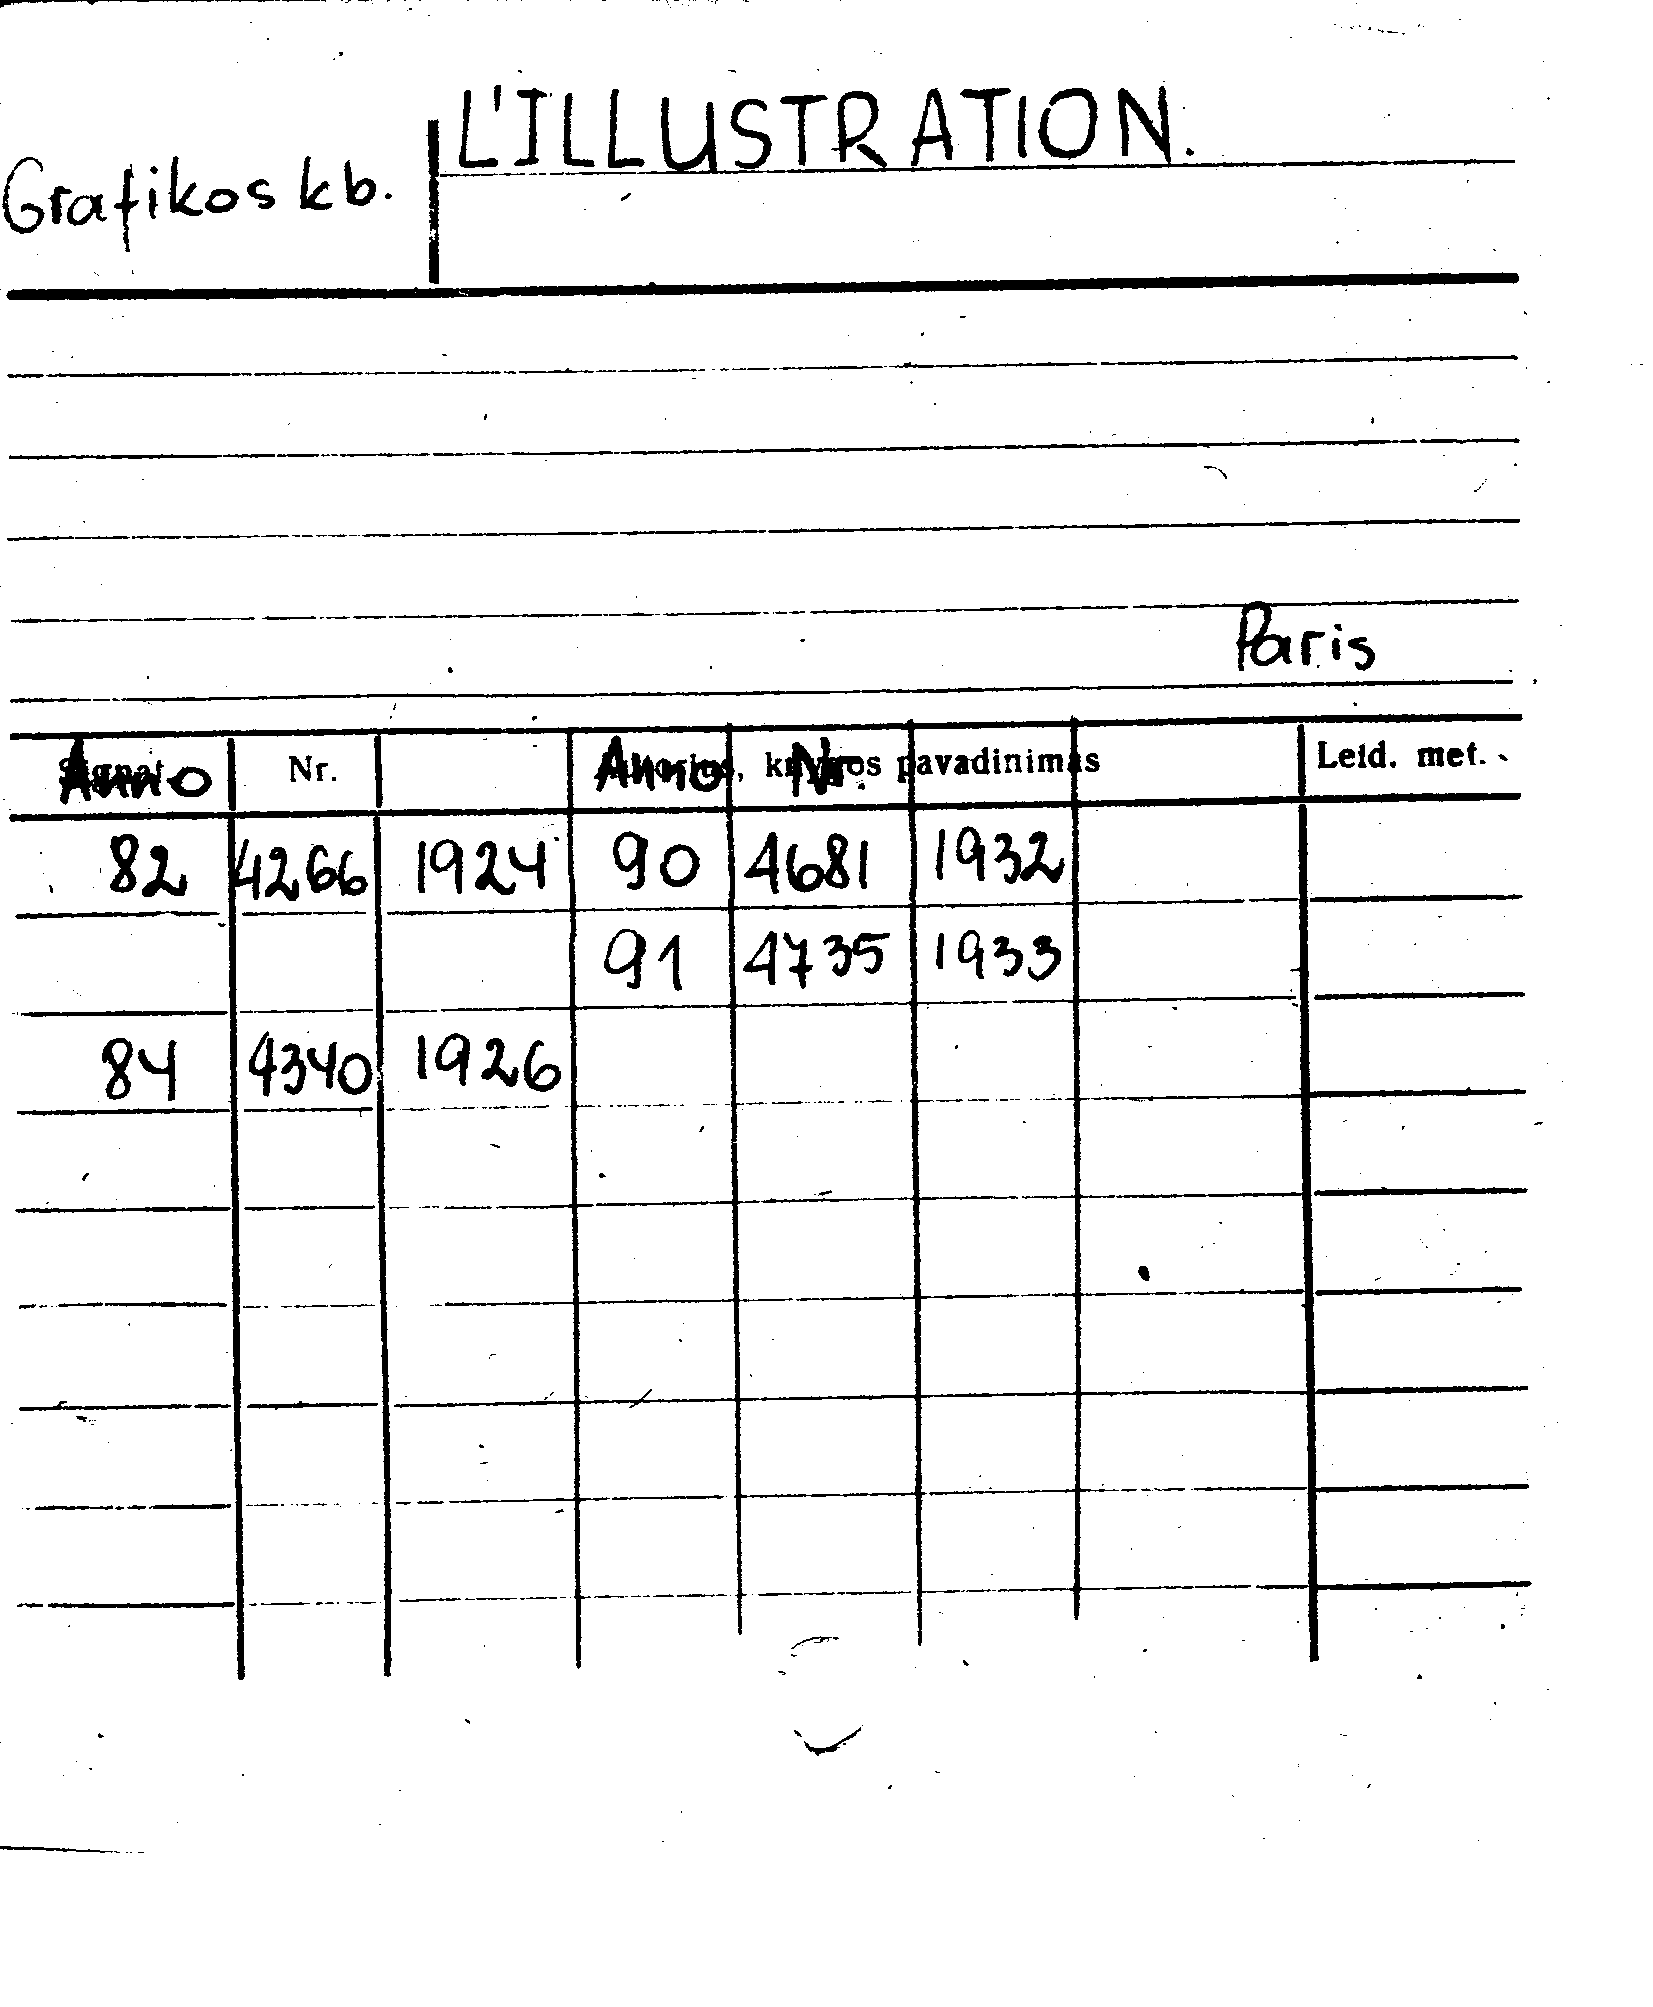 L'ILLUSTRATION.
Grafikos kb.
Paris
Anno Nr. Anno Nr. pavadinimas Leid. met.
82 4266 1924 90 4681 1932
91 4735 1933
84 4340 1926